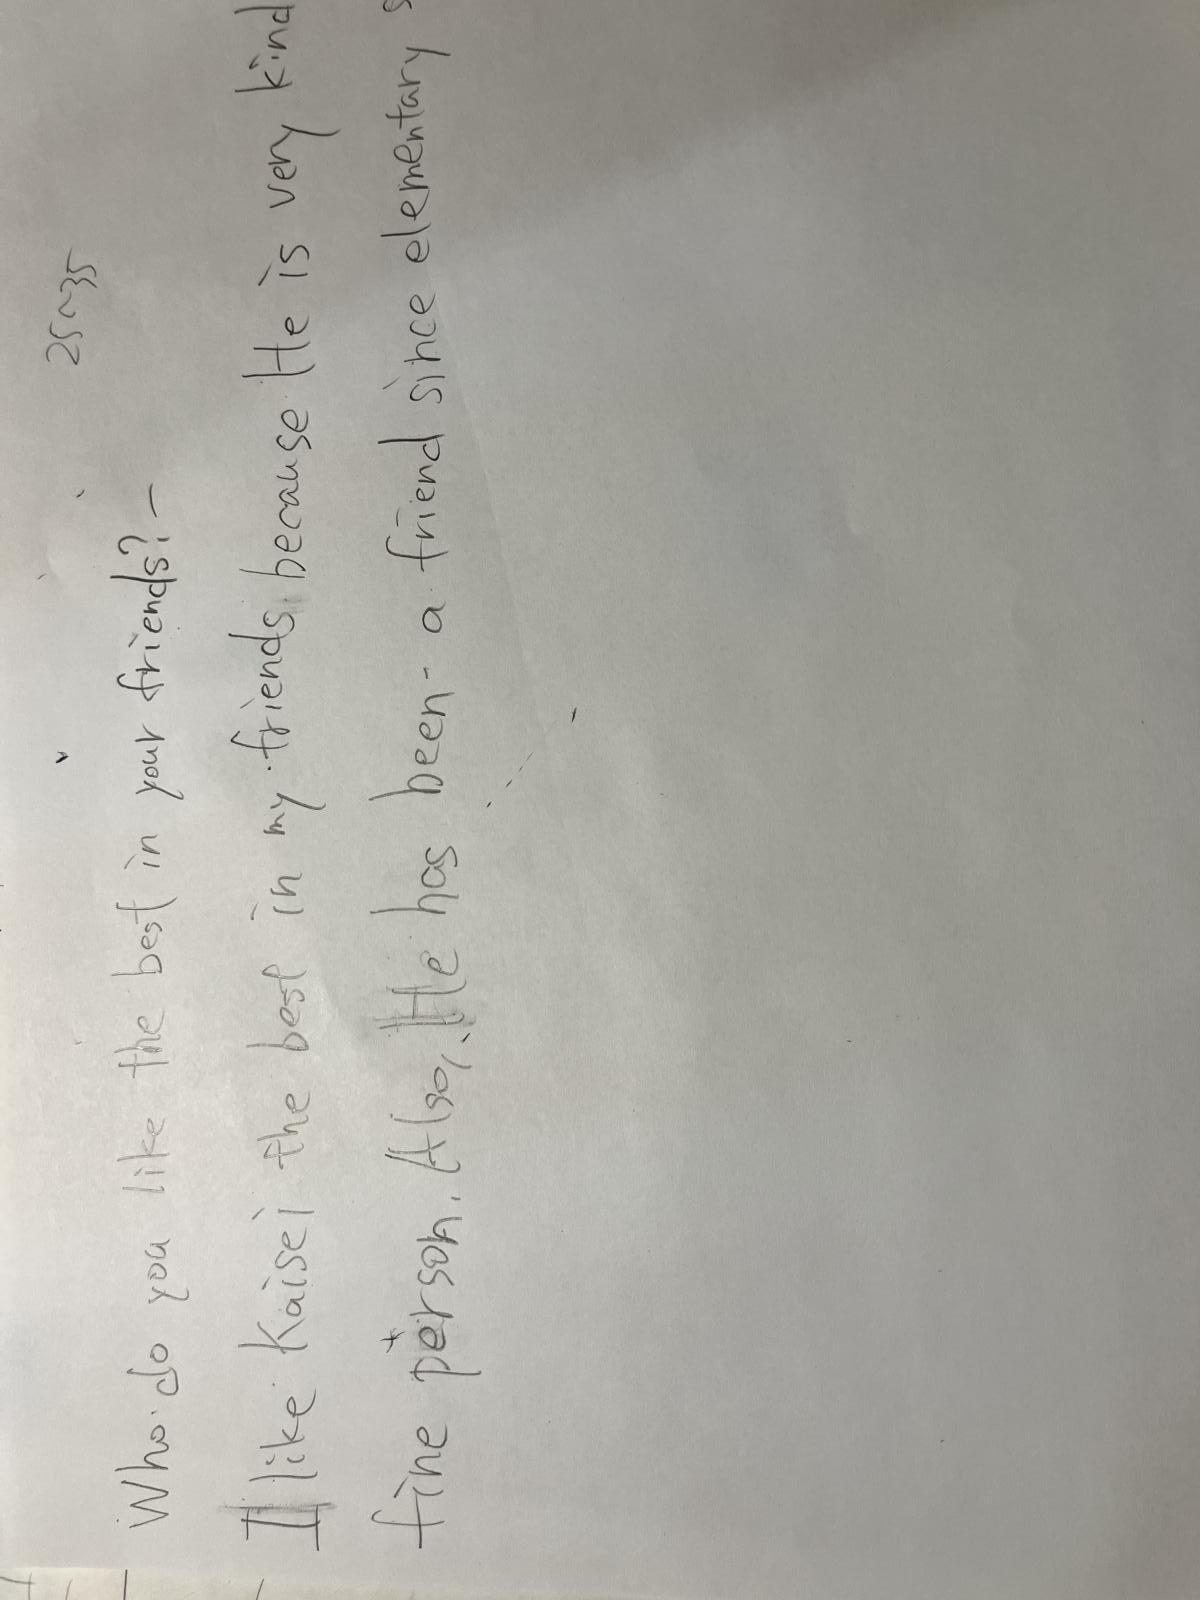 25~35
Who do you like the best in your friends?
I like Kaisei the best in my friends, because He is very kind
fine person. Also, He has been a friend since elementary s